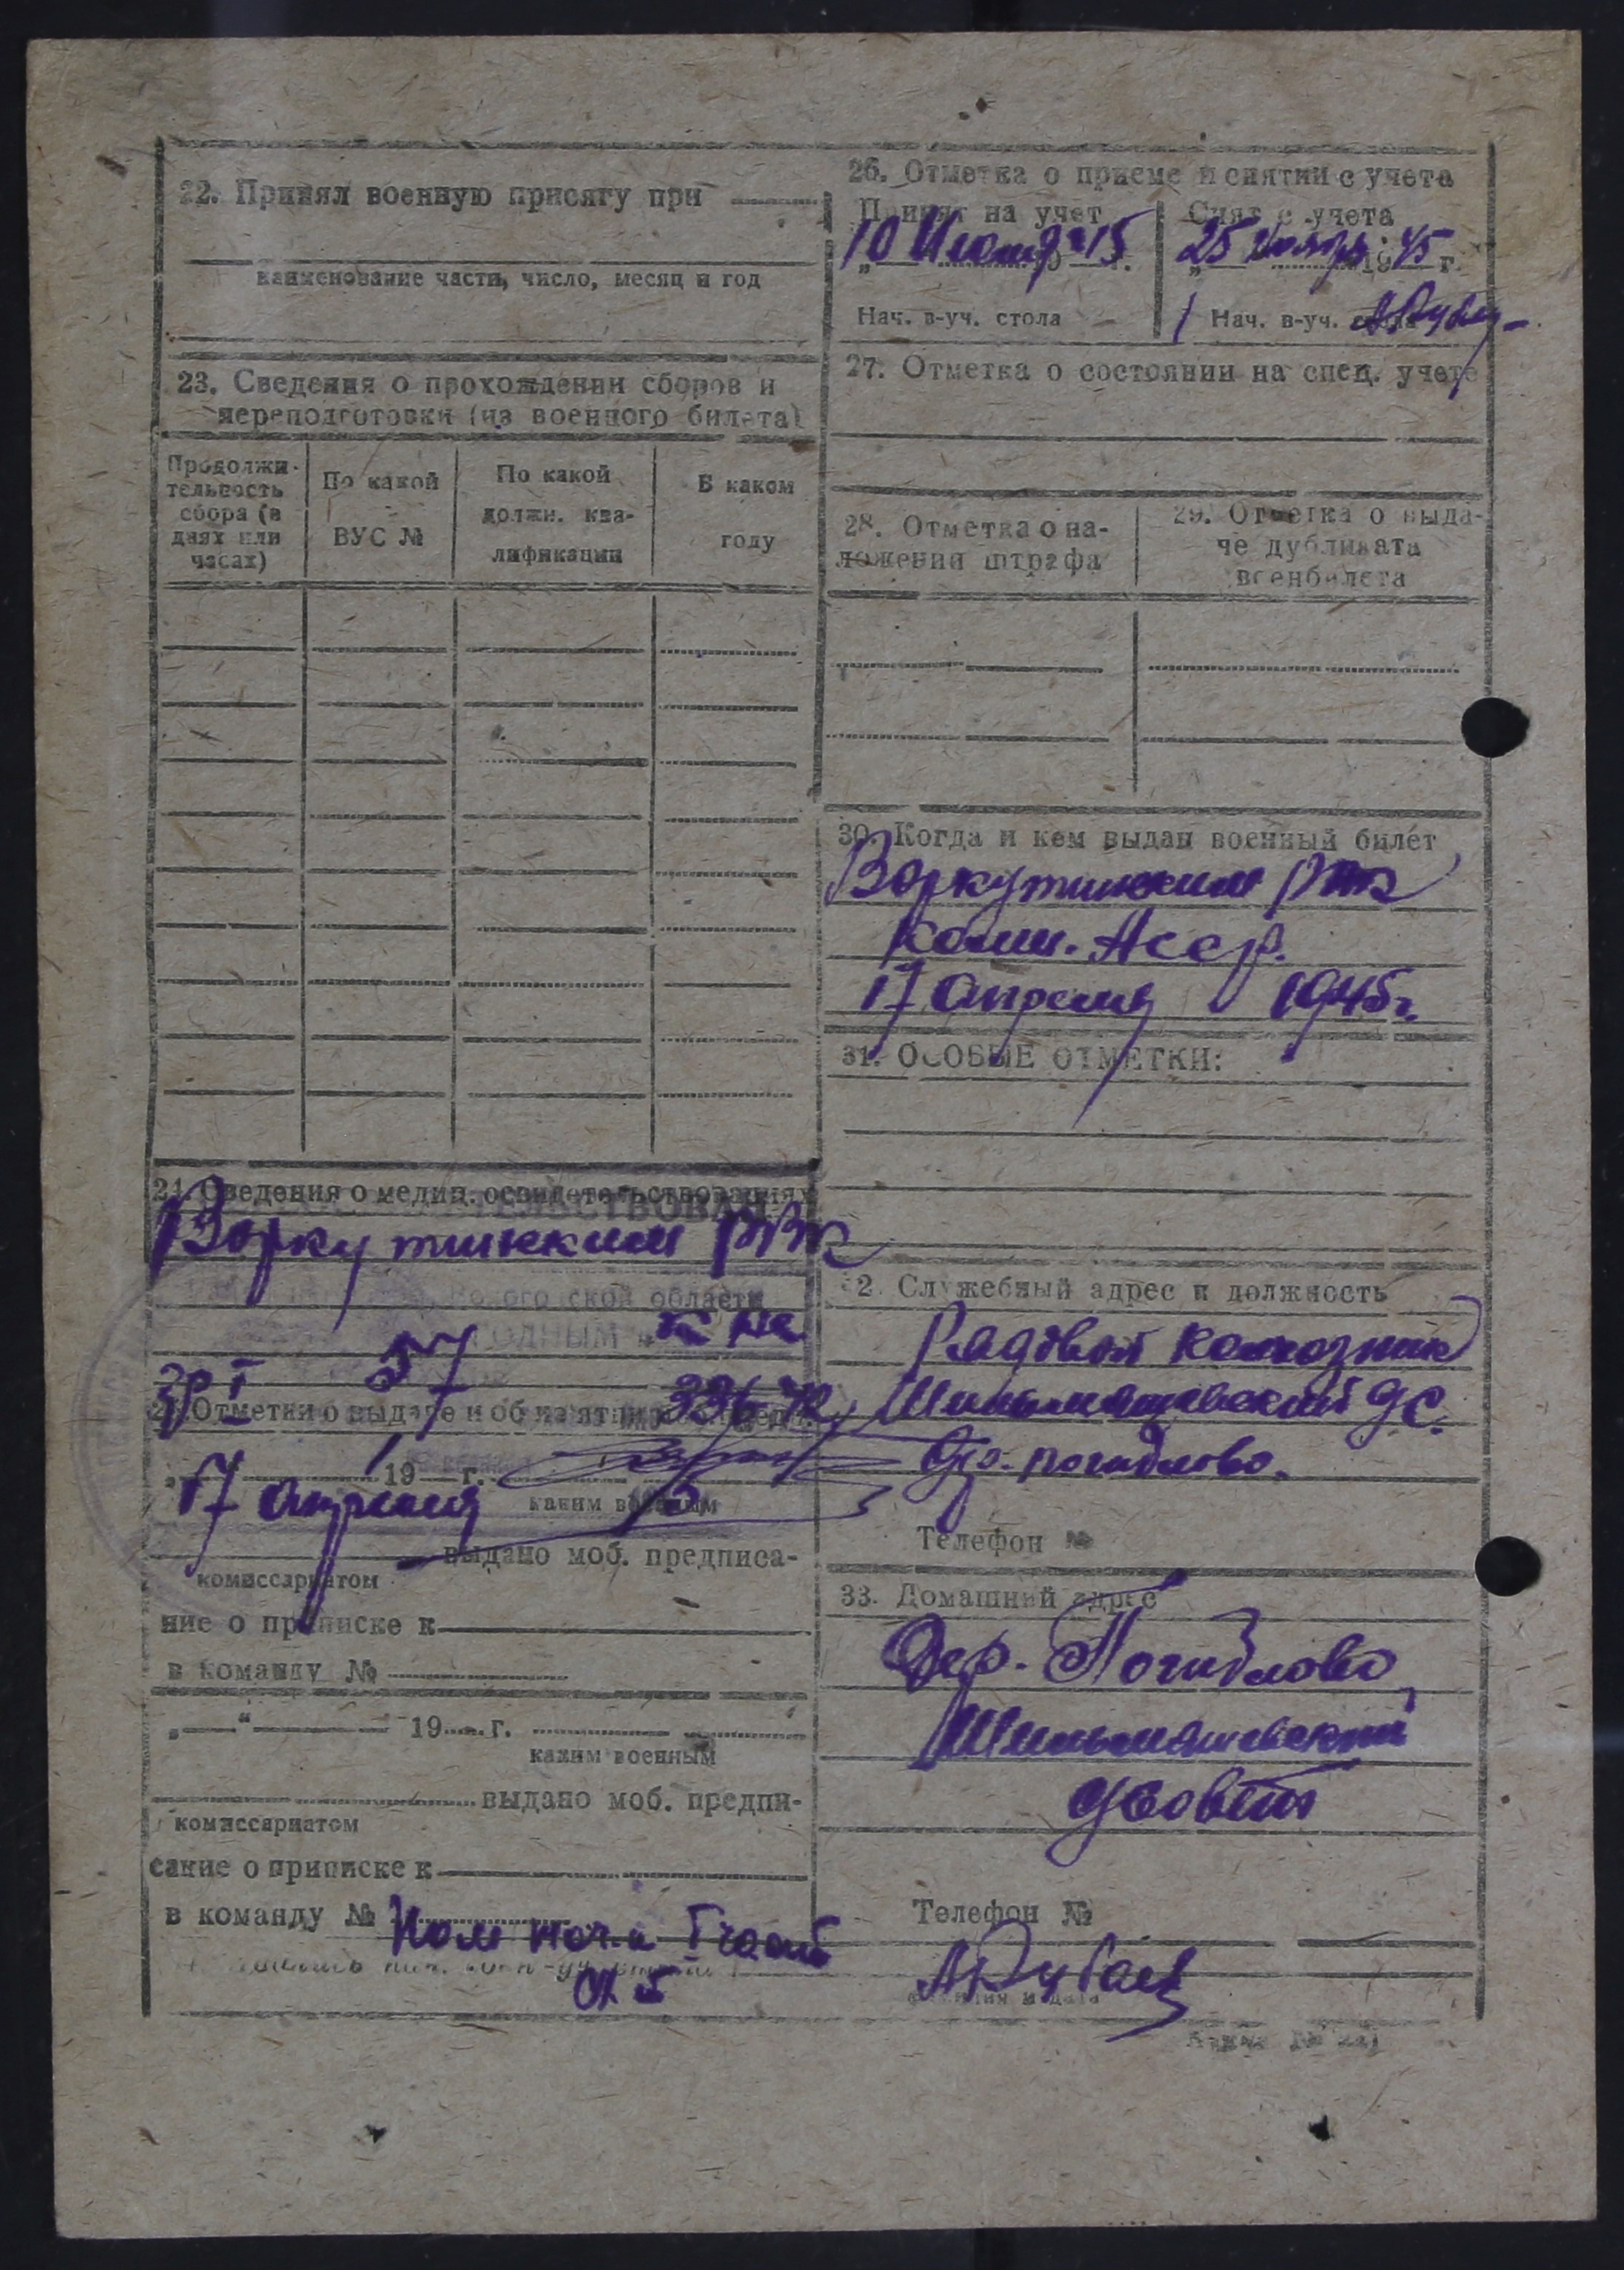 22. Принял военную присягу при
наименование части, число, месяц и год
23. Сведения о прохождении сборов и
переподготовки (из военного билета)
Продолжи-
тельность
сбора (в
днях или
часах)
По какой
ВУС №
По какой
должн. ква-
лификации
В каком
году
24. Сведения о медиц. освидетельствованиях
Воркутинским РВК
области
ГОДНЫМ
гр I 57 336-42
25. Отметки о выдаче и об из'ятии моб. пред.
17 апреля 19 г.
каким военным
выдано моб. предписа-
комиссариатом
ние о приписке к
в команду №
„ “ 19 г.
каким военным
выдано моб. предпи-
комиссариатом
сание о приписке к
в команду №
Пом нач-ка I части
26. Отметка о приеме и снятии с учета
Принят на учет
10 45
Нач. в-уч. стола
Снят с учета
25 Ноября 1945 г.
Нач. в-уч. стола
27. Отметка о состоянии на спец. учете
28. Отметка о на-
ложении штрафа
29. Отметка о выда-
че дубликата
военбилета
30. Когда и кем выдан военный билет
Воркутинским РВК
Коми. Асср.
17 апреля 1945 г.
31. ОСОБЫЕ ОТМЕТКИ:
32. Служебный адрес и должность
Рядовой колхозник
Телефон №
33. Домашний адрес
Дер. Погидлово
Телефон №